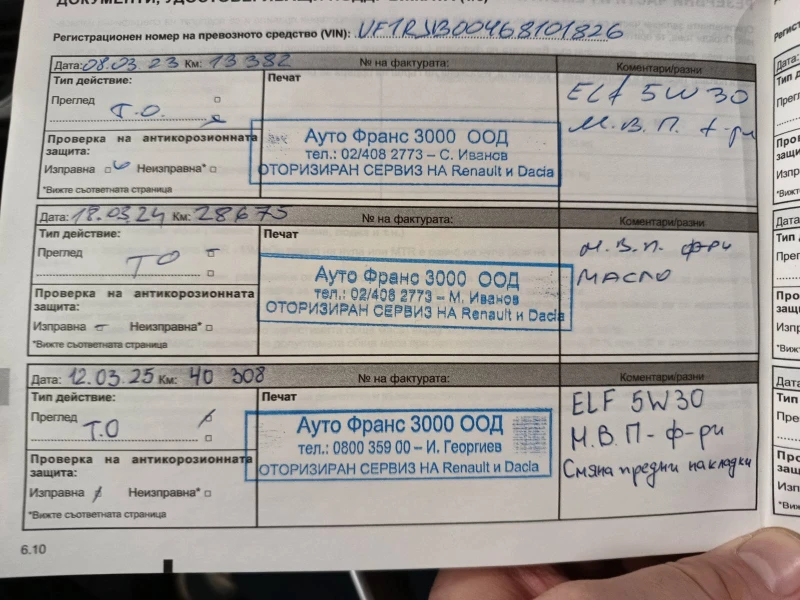 Регистрационен номер на превозното средство (VIN): VF1RJB00468101826
Дата: 08.03.23 Км: 13 382 № на фактурата: Коментари/разни
Тип действие: Печат
Преглед Т.О.
ELF 5W30
М.В.П. ф-ри
Проверка на антикорозионната защита:
Изправна Неизправна*
*Вижте съответната страница
Ауто Франс 3000 ООД
тел.: 02/408 2773 – С. Иванов
ОТОРИЗИРАН СЕРВИЗ НА Renault и Dacia
Дата: 18.03.24 Км: 28675 № на фактурата: Коментари/разни
Тип действие: Печат
Преглед ТО
М.В.П. фри
масло
Проверка на антикорозионната защита:
Изправна Неизправна*
*Вижте съответната страница
Ауто Франс 3000 ООД
тел.: 02/408 2773 – М. Иванов
ОТОРИЗИРАН СЕРВИЗ НА Renault и Dacia
Дата: 12.03.25 Км: 40 308 № на фактурата: Коментари/разни
Тип действие: Печат
Преглед Т.О
ELF 5W30
М.В.П - ф-ри
Смяна предни накладки
Проверка на антикорозионната защита:
Изправна Неизправна*
*Вижте съответната страница
Ауто Франс 3000 ООД
тел.: 0800 359 00 – И. Георгиев
ОТОРИЗИРАН СЕРВИЗ НА Renault и Dacia
6.10